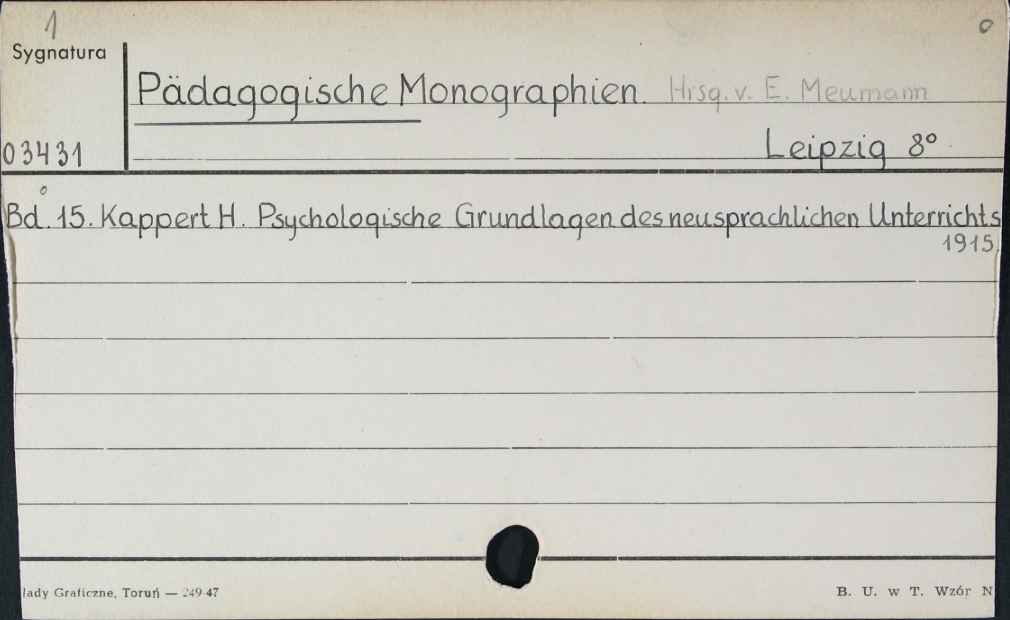 1
o
Sygnatura
Pädagogische Monographien. Hrsg. v. E. Meumann
03431
Leipzig 8°
Bd. 15. Kappert H. Psychologische Grundlagen des neusprachlichen Unterrichts
1915.
łady Graficzne, Toruń — 249-47
B. U. w T. Wzór N